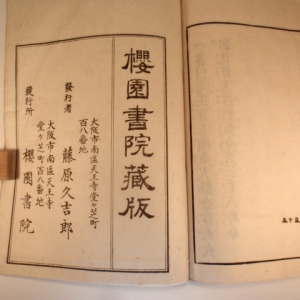 五十五
櫻園書院藏版
大阪市南區天王寺堂ヶ芝町
百八番地
發行者 藤原久吉郎
大阪市南區天王寺
堂ヶ芝町百八番地
發行所 櫻園書院